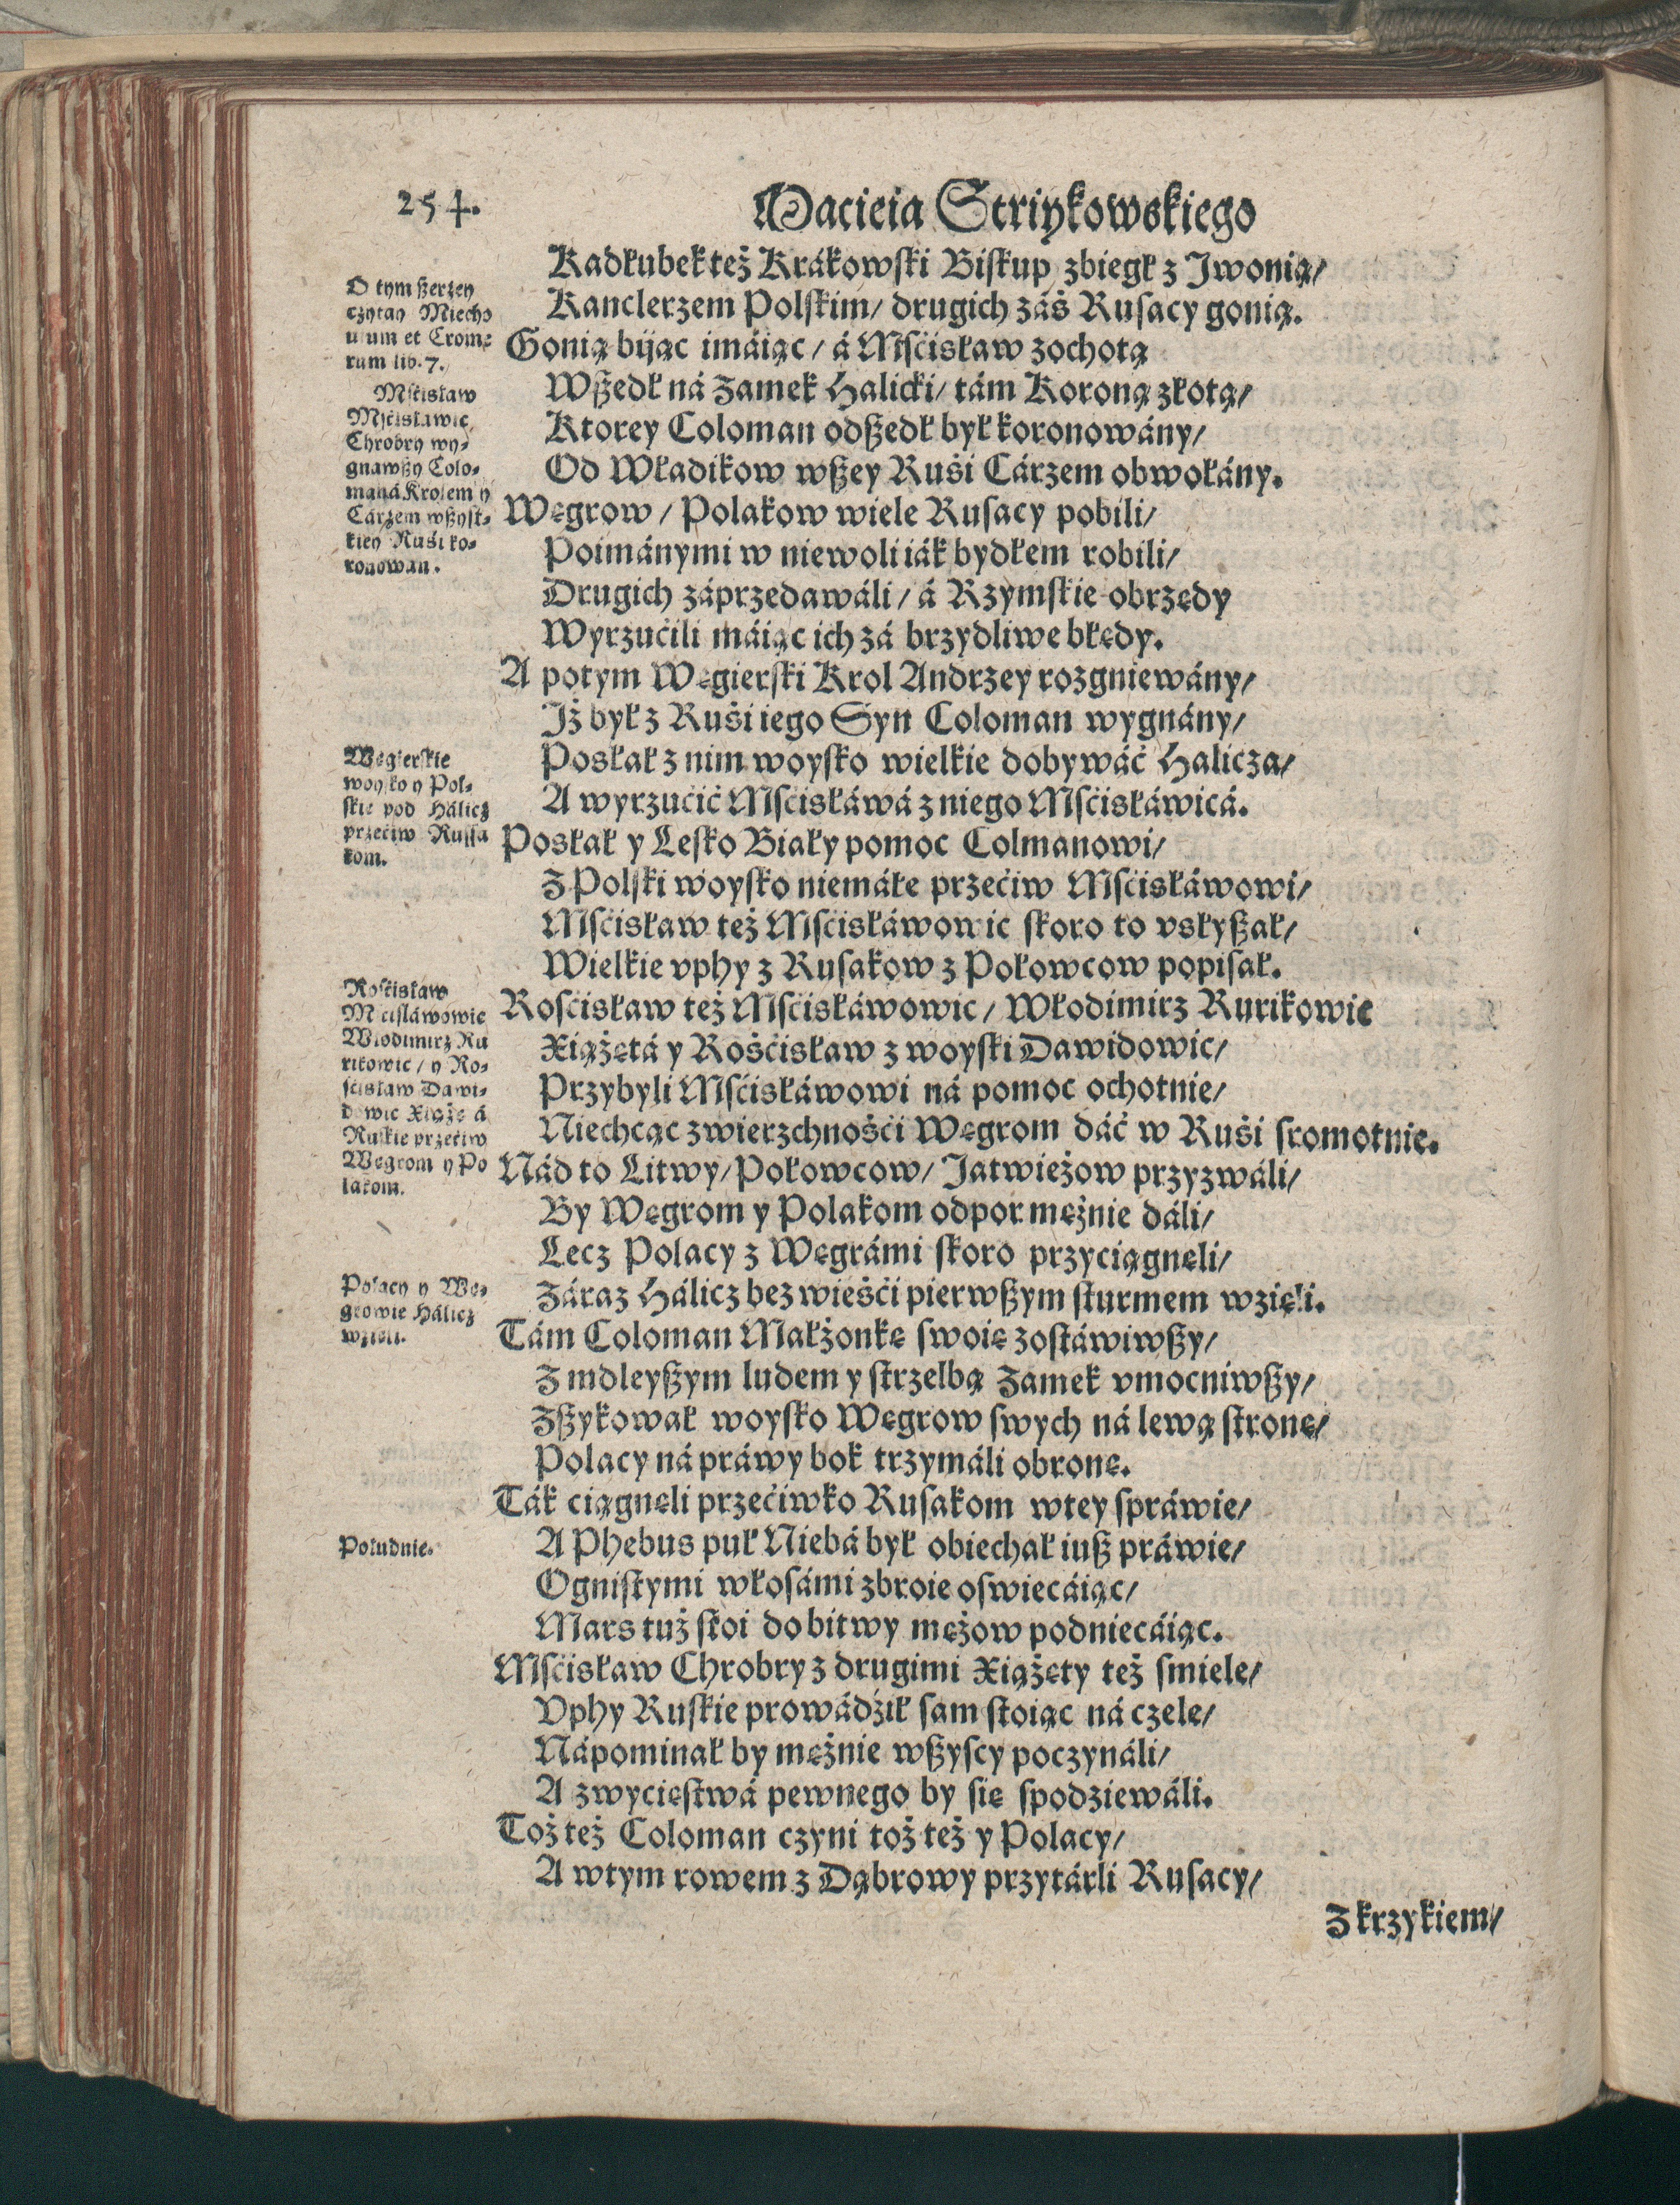 254.
Macieia Striykowskiego
Kadłubek też Krákowski Biskup zbiegł z Jwonią/
Kanclerzem Polskim/ drugich záś Rusacy gonią.
Gonią bijąc imáiąc/ á Mśćisław zochotą
Wszedł ná Zamek Halicki/ tám Koroną złotą/
Ktorey Coloman odszedł był koronowány/
Od Władikow wszey Ruśi Cárzem obwołány.
Węgrow/ Polakow wiele Rusacy pobili/
Poimánymi w niewoli iák bydłem robili/
Drugich záprzedawáli/ á Rzymskie obrzędy
Wyrzućili máiąc ich zá brzydliwe błędy.
A potym Węgierski Krol Andrzey rozgniewány/
Jż był z Ruśi iego Syn Coloman wygnány/
Posłał z nim woysko wielkie dobywáć Halicza/
A wyrzućić Mśćisłáwá z niego Mśćisłáwicá.
Posłał y Lesko Biały pomoc Colmanowi/
Z Polski woysko niemáłe przećiw Mśćisłáwowi/
Mśćisław też Mśćisłáwowic skoro to vsłyszał/
Wielkie vphy z Rusakow z Połowcow popisał.
Rosćisław też Mśćisłáwowic/ Włodimirz Rurikowic
Xiążętá y Rośćisław z woyski Dawidowic/
Przybyli Mśćisłáwowi ná pomoc ochotnie/
Niechcąc zwierzchnośći Węgrom dáć w Ruśi sromotnie.
Nád to Litwy/ Połowcow/ Jatwieżow przyzwáli/
By Węgrom y Polakom odpor mężnie dáli/
Lecz Polacy z Węgrámi skoro przyciągnęli/
Záraz Hálicz bez wieśći pierwszym sturmem wzięli.
Tám Coloman Małżonkę swoię zostáwiwszy/
Z mdleyszym ludem y strzelbą Zamek vmocniwszy/
Zszykował woysko Węgrow swych ná lewą stronę/
Polacy ná práwy bok trzymáli obronę.
Ták ciągnęli przećiwko Rusakom wtey spráwie/
A Phebus puł Niebá był obiechał iusz práwie/
Ognistymi włosámi zbroie oswiecáiąc/
Mars tuż stoi do bitwy mężow podniecáiąc.
Mśćisław Chrobry z drugimi Xiążęty też smiele/
Vphy Ruskie prowádźił sam stoiąc ná czele/
Nápominał by mężnie wszyscy poczynáli/
A zwycięstwá pewnego by się spodziewáli.
Toż też Coloman czyni toż też y Polacy/
A wtym rowem z Dąbrowy przytárli Rusacy/
Z krzykiem/
O tym szerzey
czytay Miecho
uium et Crome
rum lib. 7.
Mśćisław
Mśćisławic
Chrobry wy-
gnawszy Colo-
maná Krolem y
Cárzem wszyst-
kiey Ruśi ko-
ronowan.
Węgierskie
woysko y Pol-
skie pod Hálicz
przećiw Russa
kom.
Rosćisław
Mścisláwowic
Włodimirz Ru
rikowic/ y Ro-
sćisław Dawi-
dowic Xiążętá
Ruskie przećiw
Węgrom y Po
lakom.
Polacy y Wę-
growie Hálicz
wzięli.
Południe.